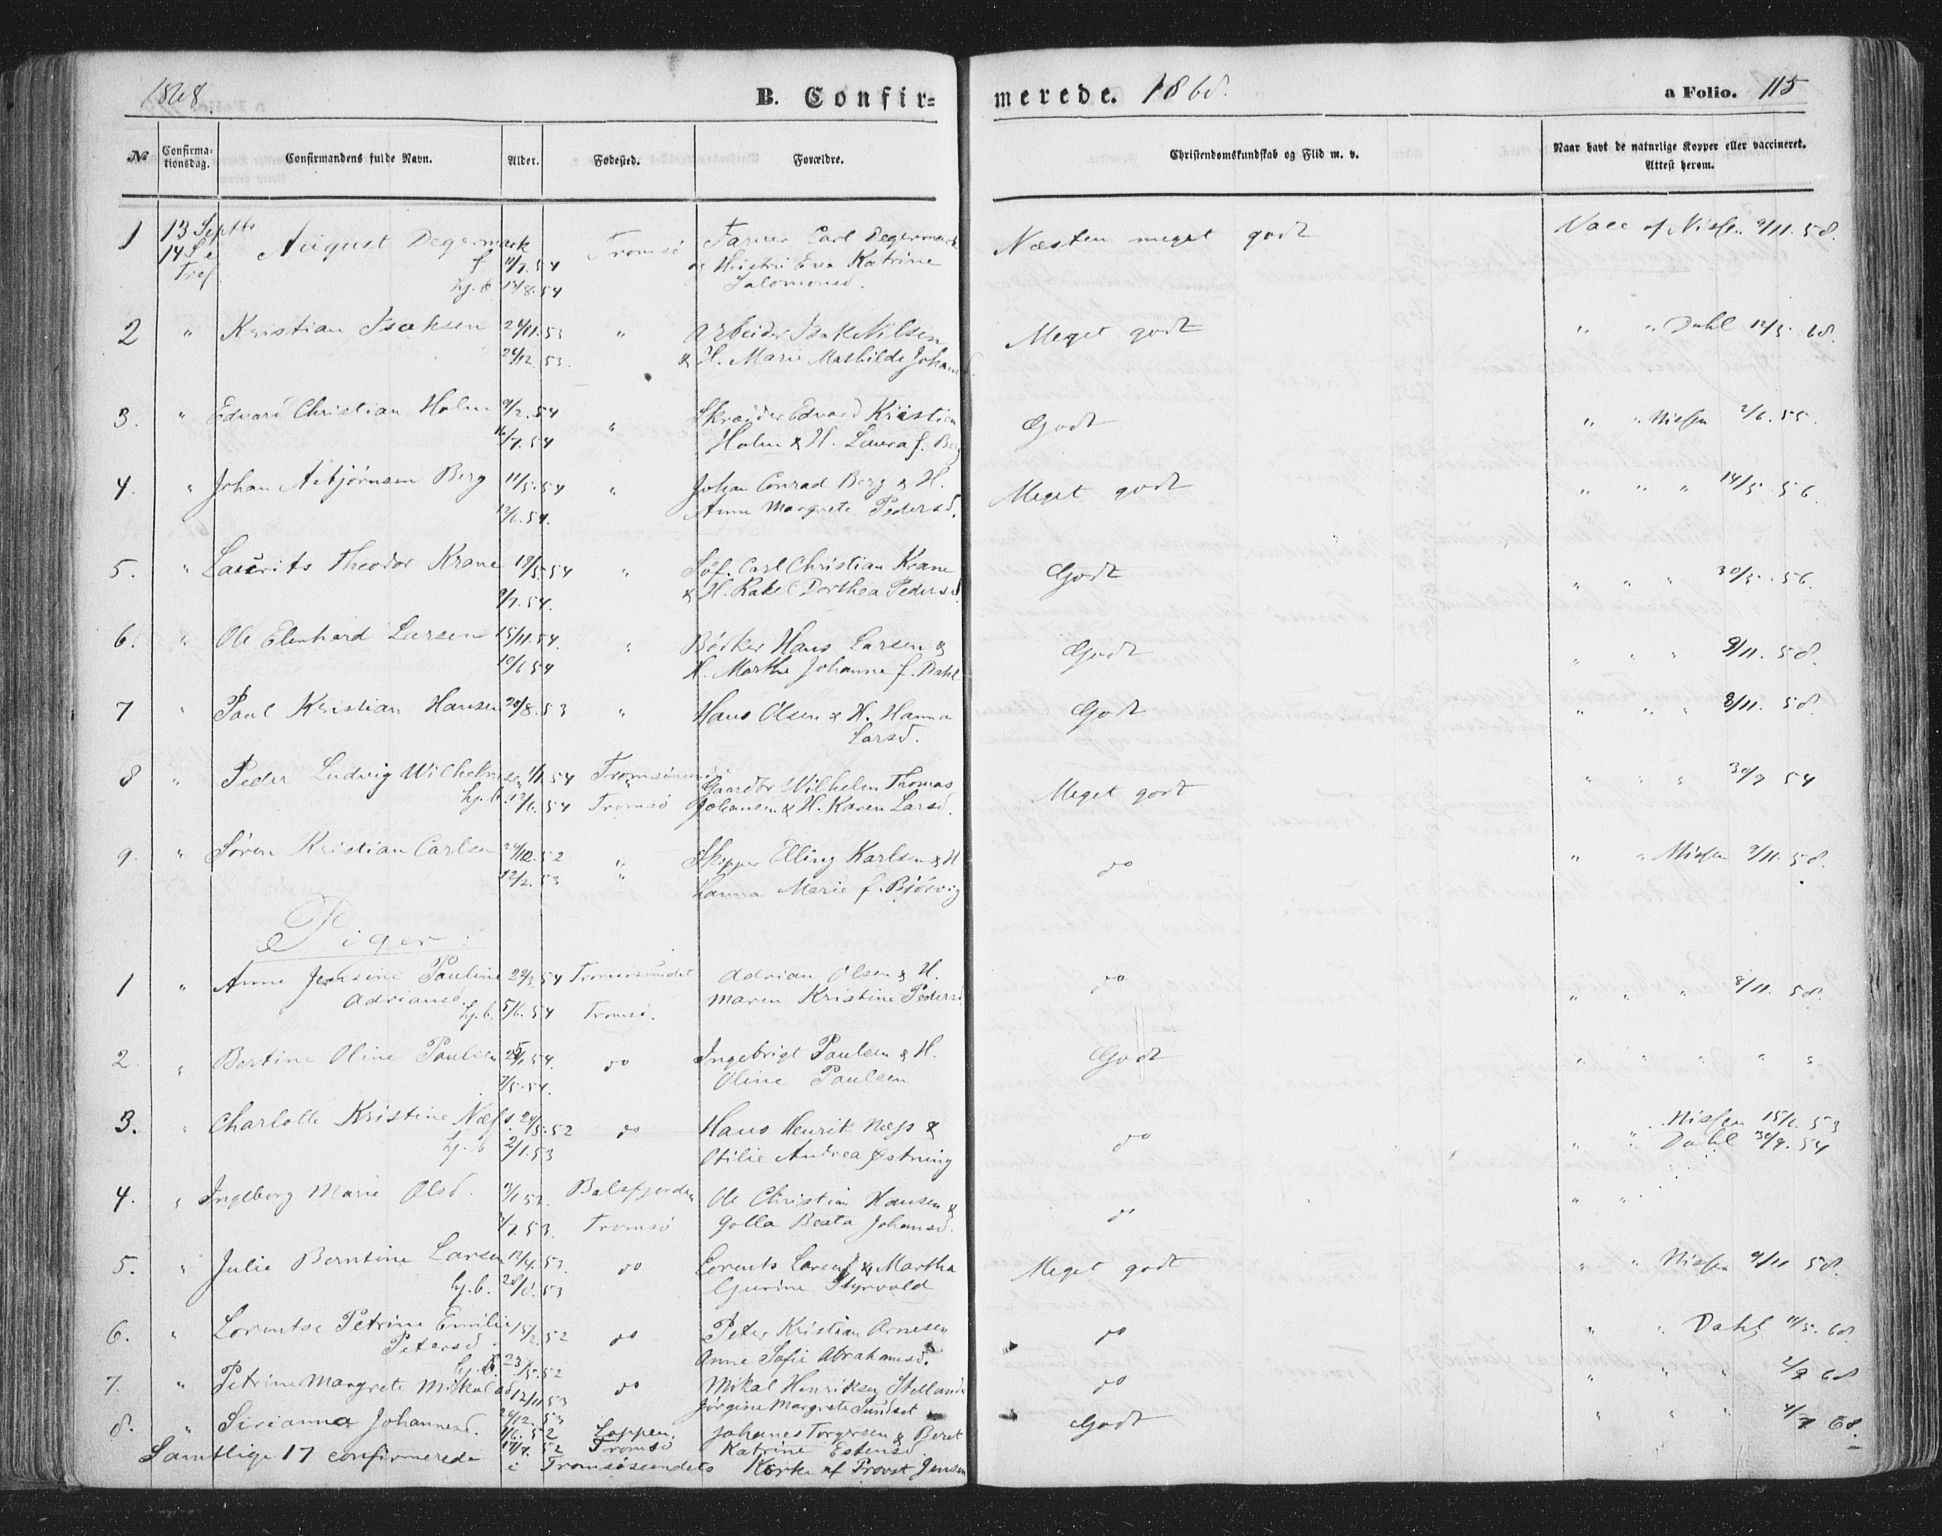 1868. B. Confir= merede. 1868. a Folio. 115
№ Confirma-tionsdag. Confirmandens fulde Navn. Alder. Fødested. Forældre. Christendomskundskab og Flid m. v. Naar havt de naturlige Kopper eller vaccineret. Attest herom.
1 13 Septbr August Degermark Tromsø Farver Carl Degermark Næsten meget godt Vacc af Nissen 9/11. 58.
14 S. e og Hustru Eva Katrine
Tref. hj. d 13/8. 54 Salomonsd.
2 " Kristian Isaksen 24/11. 53 " Arbeider Isak Nilsen Meget godt " " Dahl 12/5. 68.
24/12. 53. & H. Marie Mathilde Johans
3. " Edvard Christian Holm 9/2. 54 " Skræder Edvard Kristian Godt " " Nissen 2/6. 55.
16/7. 54 Holm & H. Laura f. Berg
4. " Johan Asbjørnsen Berg 11/5. 54 " Johan Conrad Berg & H. Meget godt " " " 14/5. 56.
12/6. 54. Anne Margrete Pedersd.
5. " Laurits Theodor Krane 19/5 54 " Søf. Carl Christian Krane Godt " " " 30/5. 56.
9/7. 54. & H. Rakel Dorthea Pedersd.
6. " Ole Edenhard Larsen 15/11. 54. " Bødker Hans Larsen & Godt " " " 9/11. 58.
19/6 54 H. Marthe Johanne f. Dahl
7 " Paul Kristian Hansen 20/8. 53 " Hans Olsen & H. Hanna Godt " " " 8/11. 58.
Larsd.
8 " Peder Ludvig Wilhelmsen 1/1. 54 Tromsøsund Gaardbr Wilhelm Thomas Meget godt " " " 30/9 54
hj. d. 12/6. 54 Tromsø Johansen & H. Karen Larsd.
9. " Søren Kristian Carlsen 24/10. 52 " Skipper Elling Karlsen & H do " " Nissen 9/11. 58.
12/2. 53 " Hanna Marie f. Bjørvig
Piger.
1 " Anne Jensine Pauline 29/3. 54 Tromsøsundet Adrian Olsen & H. do " " " 8/11. 58.
Adriansd. hj. d. 5/6. 54 Tromsø. Maren Kristine Pedersd
2. " Bertine Oline Paulsen 54. do Ingebrigt Paulsen & H. Godt " " " " "
7/5. 54. Oline Paulsen
3. " Charlotte Kristine Næss. 24/5. 52 do Hans Henrik Næss & do Nissen 15/6. 53
hj. d 2/1. 53 Otilie Andrea Østning " " Dahl 30/9. 54
4. " Ingeborg Marie Olsd. Balsfjorden Ole Christian Hansen & do " "
53. Tromsø Golla Beata Johansd.
5. " Julie Berntine Larsen 12/4. 53. do Lorents Larsen & Martha Meget godt " " Nissen 9/11 58.
hj. d. 28/8. 53 Gjurine Styrvold
6. " Lorentse Petrine Emilie 15/2. 52 do Peter Kristian Arnesen do " " Dahl 11/5. 68.
Petersd. hj. d. 23/5. 52 Anne Sofie Abrahamsd.
7. " Petrine Margrete Mikalsd 12/11 53 do Mikal Henriksen do " " " 68
24/12. 53 Jørgine Margrete Sundset
8. " Sirianna Johannesd. 52 Loppen. Johannes Torgersen & Beret Godt " " " 68.
52 Tromsø Katrine Estensd.
Samtlige 17 confirmerede i Tromsøsundets Kirke af Provst Jensen